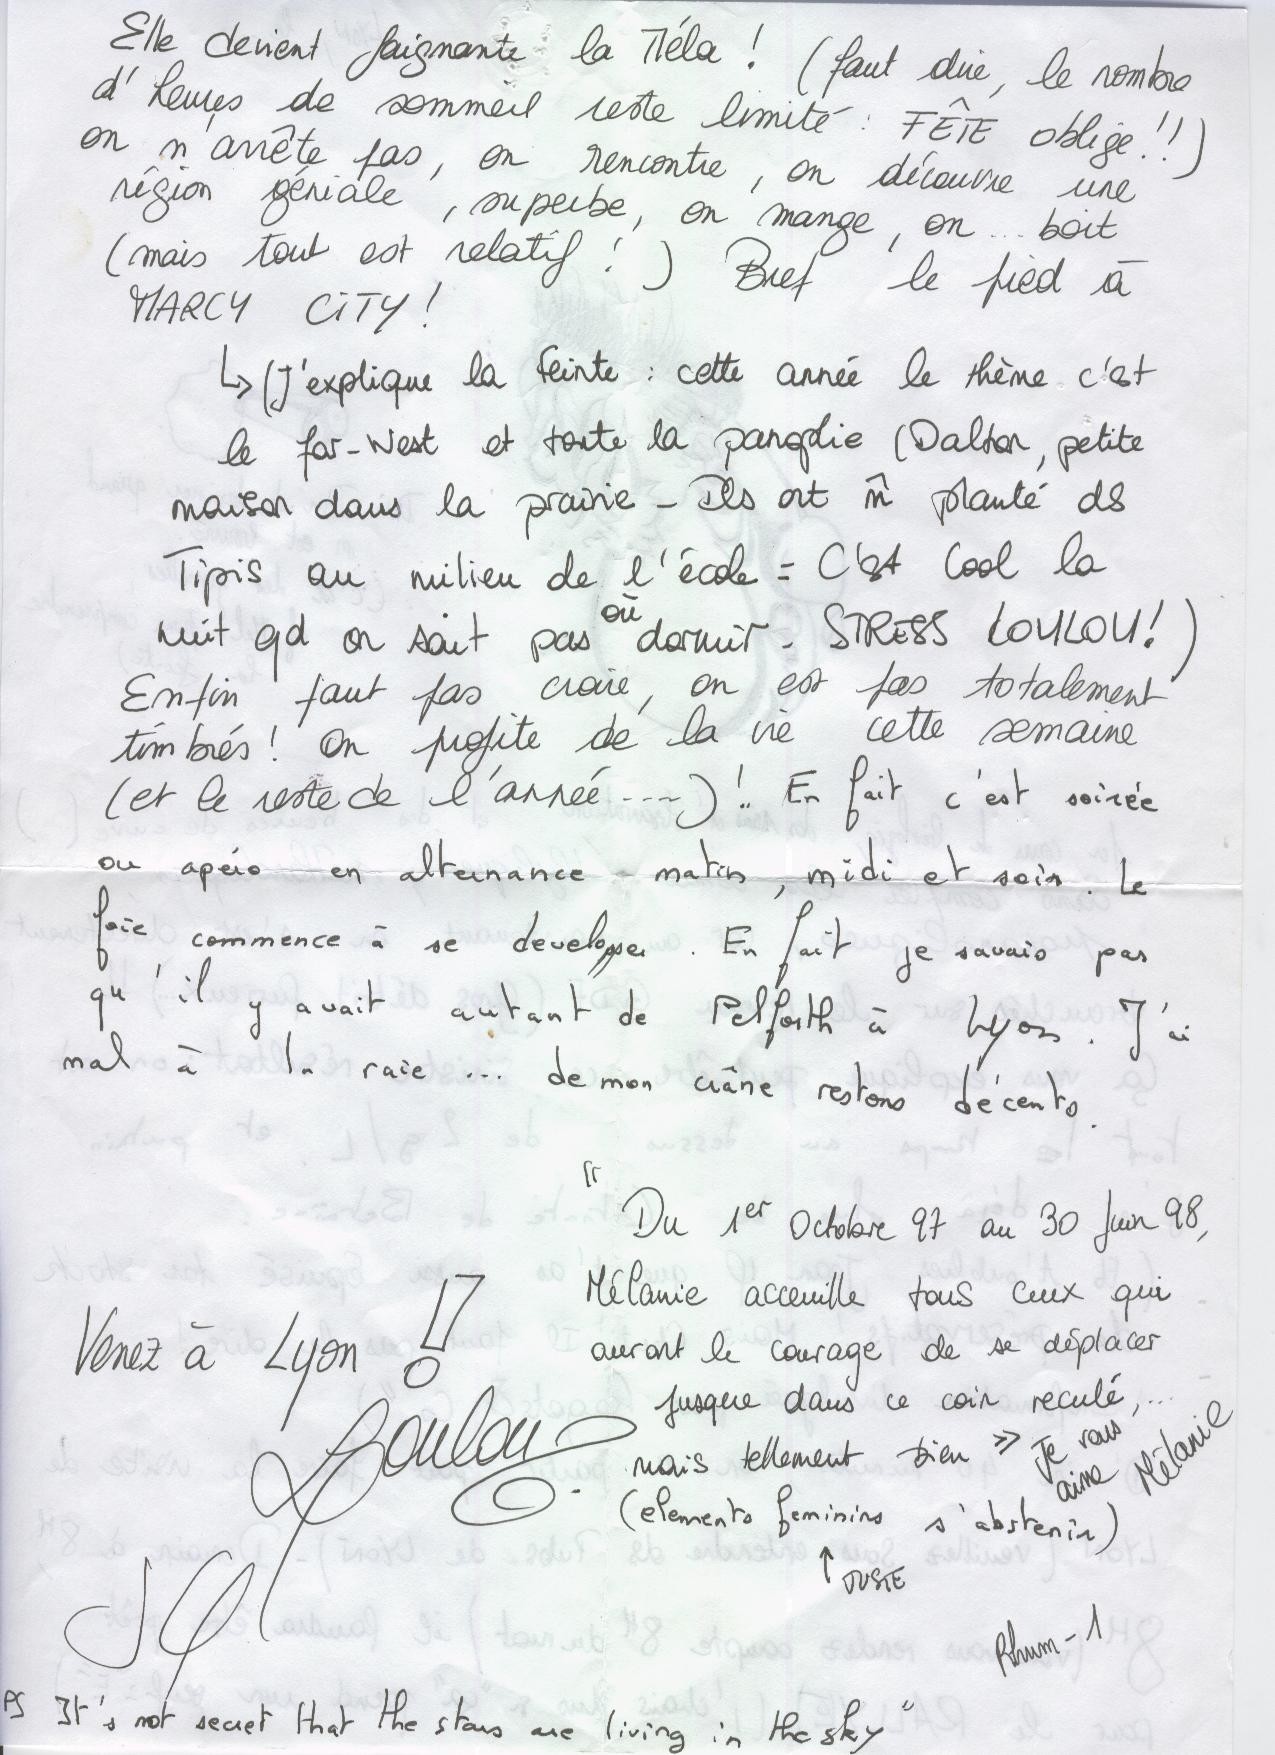 Elle devient faignante la Méla ! (faut dire, le nombre
d'heures de sommeil reste limité : FÊTE oblige !!)
on n'arrête pas, on rencontre, on découvre une
région géniale, superbe, on mange, on ... boit
(mais tout est relatif ! ) Bref le pied à
MARCY CITY !
↳ (J'explique la feinte : cette année le thème c'est
le far-West et toute la panoplie (Dalton, petite
maison dans la prairie - Ils ont m̂ planté ds
Tipis au milieu de l'école = C'est Cool la
nuit qd on sait pas où dormir - STRESS LOULOU! )
Enfin faut pas croire, on est pas totalement
timbrés ! On profite de la vie cette semaine
(et le reste de l'année ----) !.. En fait c'est soirée
ou apéro en alternance - matin, midi et soir. Le
foie commence à se developper. En fait je savais pas
qu'il y avait autant de Pelforth à Lyon. J'ai
mal à la raie ... de mon crâne restons décents.
"Du 1er Octobre 97 au 30 Juin 98,
Mélanie acceuille tous ceux qui
auront le courage de se déplacer
jusque dans ce coin reculé, ...
mais tellement bien »
Je vous
aime Mélanie
(elements feminins s'abstenir)
↑ JUSTE
Venez à Lyon !
Loulou
Rhum-1
PS It's not secret that the stars are living in the sky"